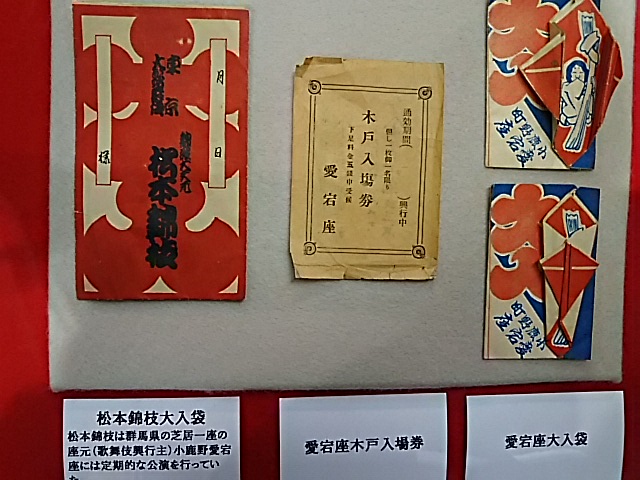 月
日
様
東京
大歌舞伎
松本錦枝
通効期間(　)興行中
但し一枚御一名限り
木戸入場券
下足料金五銭申受候
愛宕座
小鹿野町
愛宕座
小鹿野町
愛宕座
松本錦枝大入袋
松本錦枝は群馬県の芝居一座の
座元(歌舞伎興行主)小鹿野愛宕
座には定期的な公演を行ってい
た
愛宕座木戸入場券
愛宕座大入袋